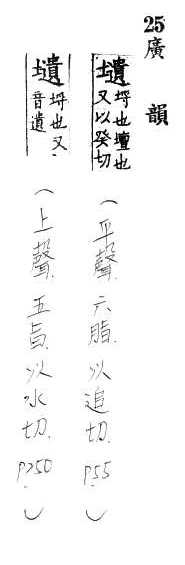 25廣韻
壝 埒也壇也又以癸切 (平聲.六脂.以追切.P.55)
壝 埒也又音遺 (上聲.五旨.以水切.P.250)